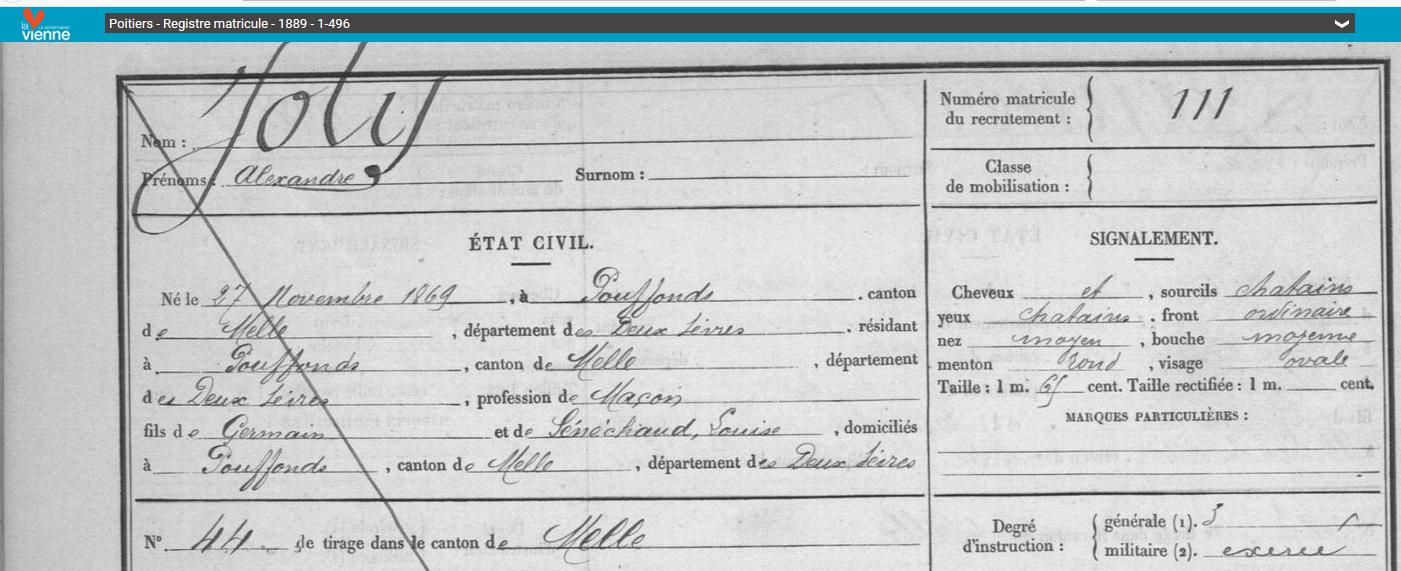 la vienne
Poitiers - Registre matricule - 1889 - 1-496
Nom : Joly
Prénoms : Alexandre Surnom :
Numéro matricule du recrutement : 111
Classe de mobilisation :
ÉTAT CIVIL.
Né le 27 Novembre 1869, à Pouffonds. canton
de Melle, département des Deux Sèvres. résidant
à Pouffonds, canton de Melle, département
des Deux Sèvres, profession de Maçon
fils de Germain et de Sénéchaud, Louise, domiciliés
à Pouffonds, canton de Melle, département des Deux Sèvres
SIGNALEMENT.
Cheveux et, sourcils chatains
yeux chatains. front ordinaire
nez moyen, bouche moyenne
menton rond, visage ovale
Taille : 1 m. 65 cent. Taille rectifiée : 1 m. cent.
MARQUES PARTICULIÈRES :
N° 44. de tirage dans le canton de Melle
Degré d'instruction : générale (1). 3
militaire (2). exercé